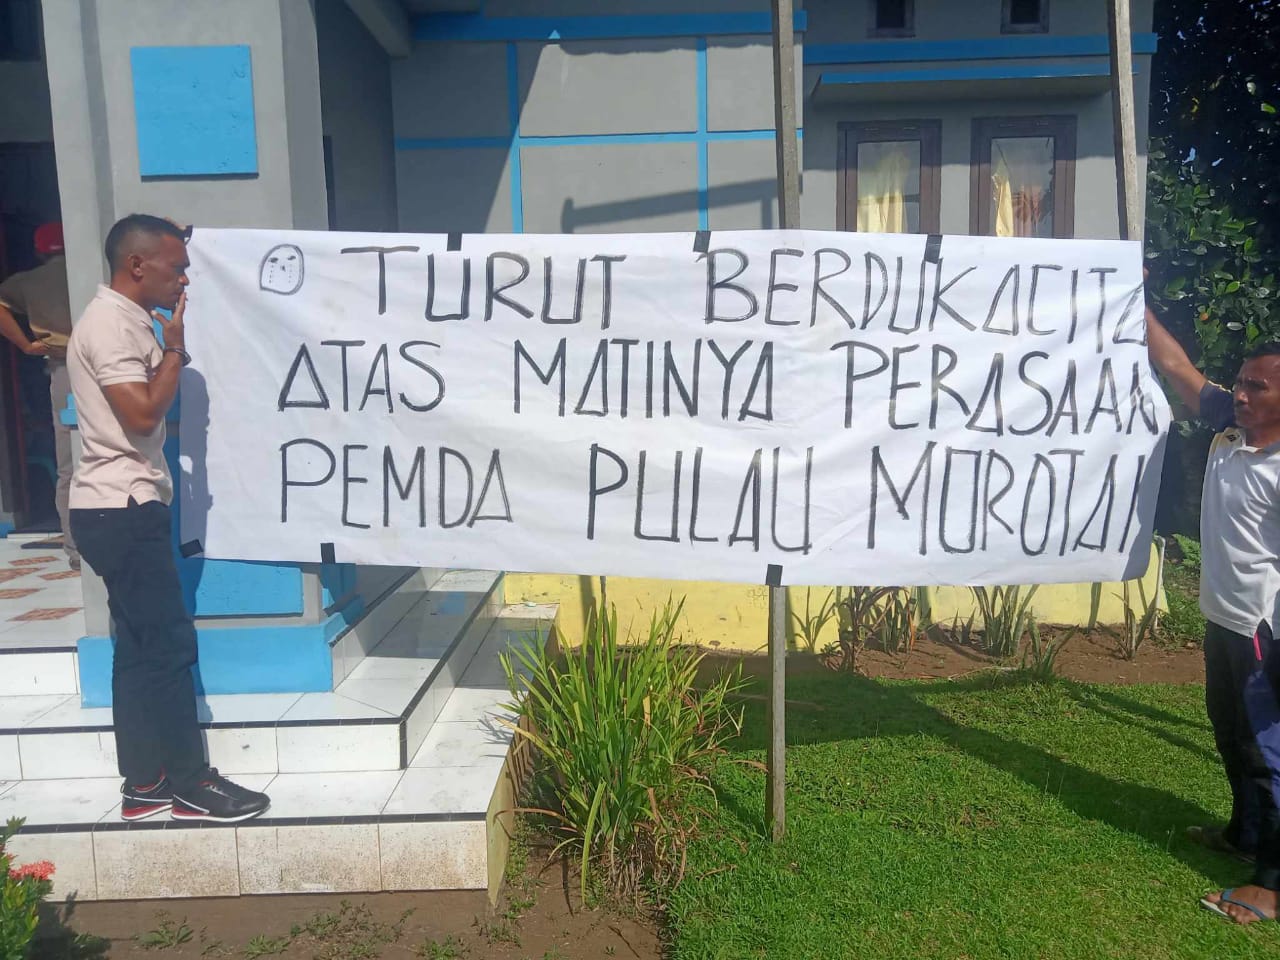 TURUT BERDUKACITA
ATAS MATINYA PERASAAN
PEMDA PULAU MOROTAI